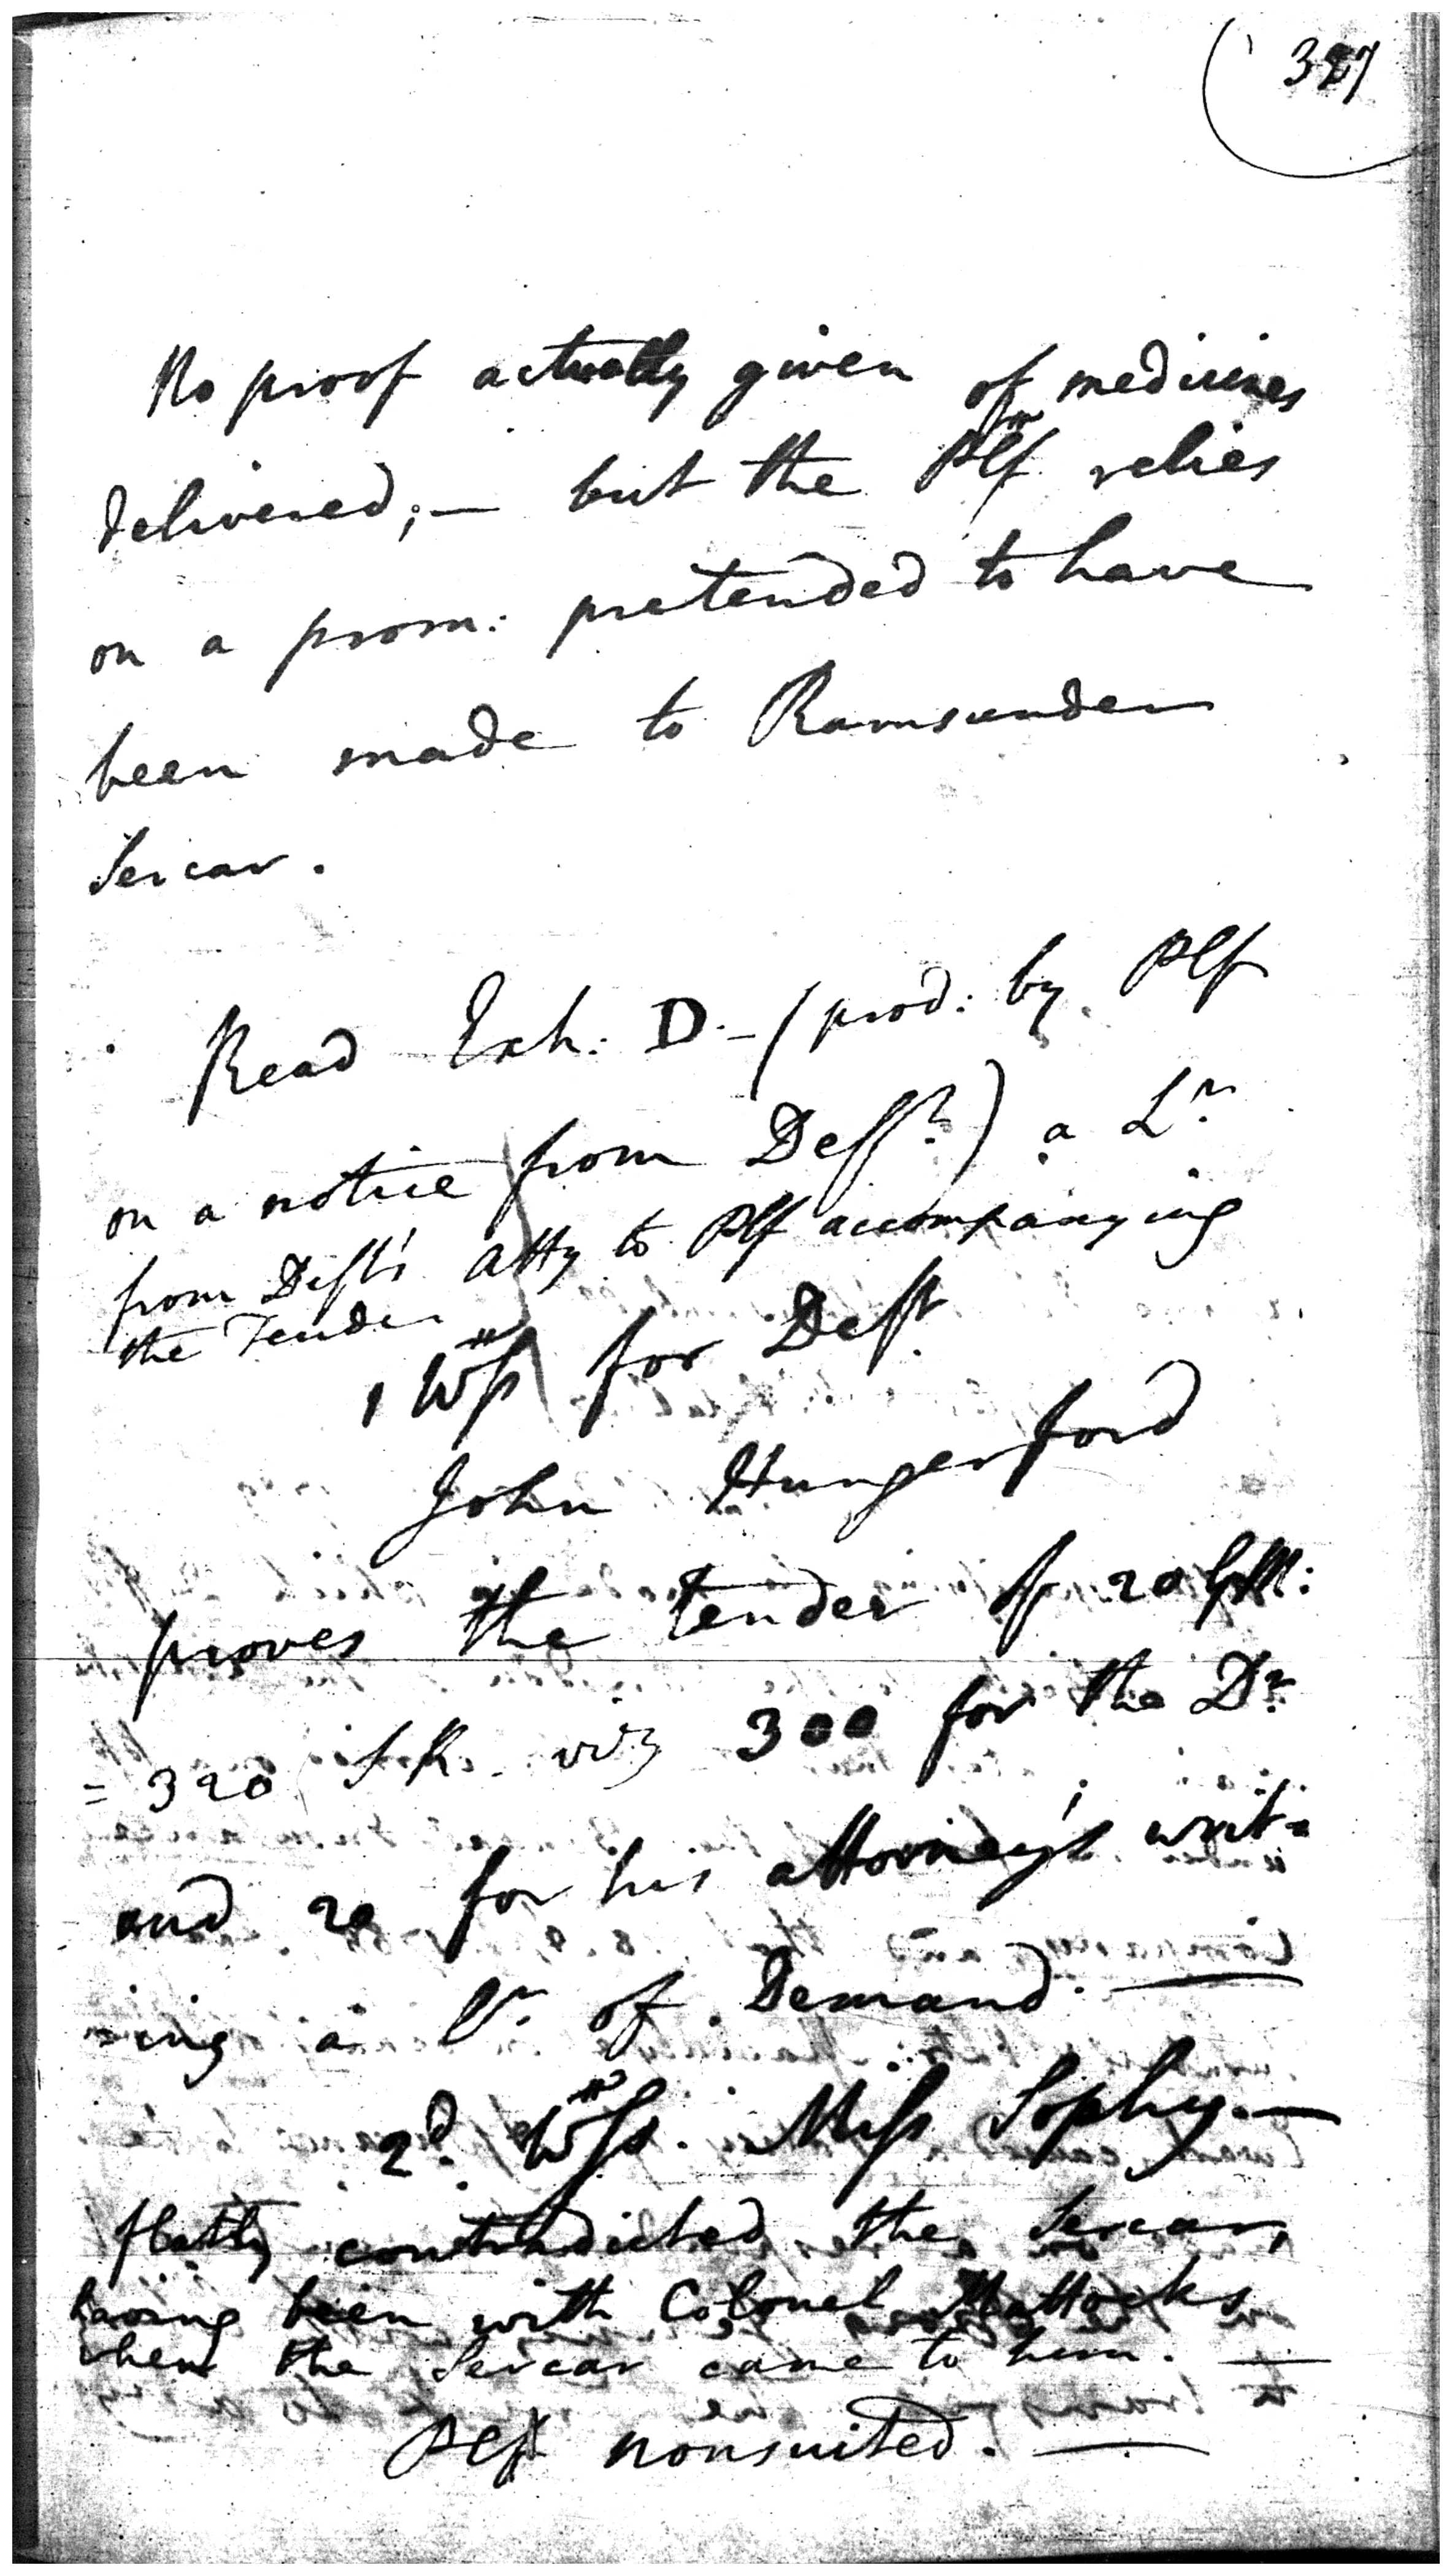 387
No proof actually given of medicines
delivered; — but the Plf relies
on a prom: pretended to have
been made to Ramsunder
Sercar.
Read Exh: D. — (prod: by Plf
on a notice from Deft) a Lr
from Deft's Atty to Plf accompanying
the Tender
1 Wss for Deft
John Hungerford
proves the tender of 20 GM:
= 320 S.R. viz 300 for the Dr
and 20 for his attorney's writ=
=ing a Lr of Demand. —
2d Wss. Miss Sophy. —
flatly contradicted the Sercar,
having been with Colonel Mattocks
when the Sercar came to him. —
Plf nonsuited. —